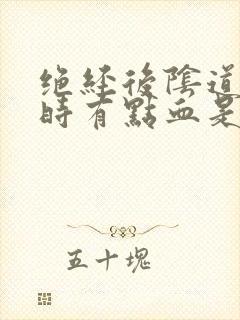 绝经後陰道
時有點血是
五十塊